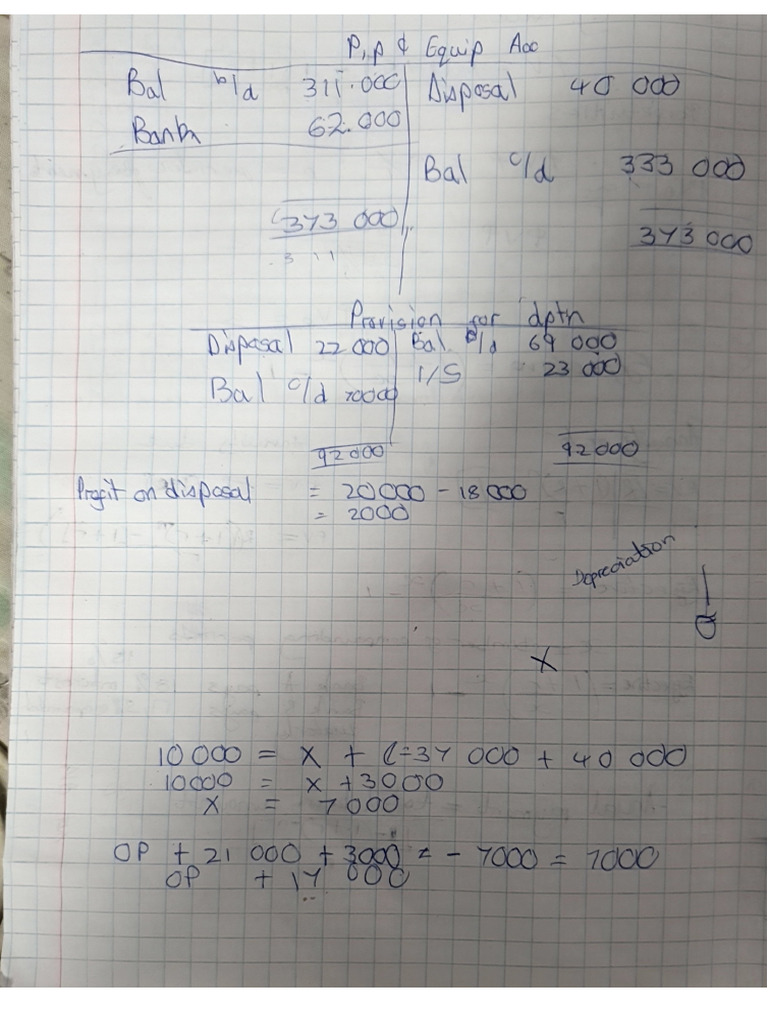 P, P & Equip Acc
Bal b/d 311.000 Disposal 40 000
Bank 62.000
Bal c/d 333 000
373 000 373 000
3 11
Provision for dptn
Disposal 22 000 Bal b/d 69 000
I/S 23 000
Bal c/d 70000
92000 92000
Profit on disposal = 20000 - 18000
= 2000
Depreciation
X
10 000 = X + (-37 000 + 40 000
10000 = X + 3000
X = 7000
OP + 21 000 + 3000 - 7000 =
OP + 17 000